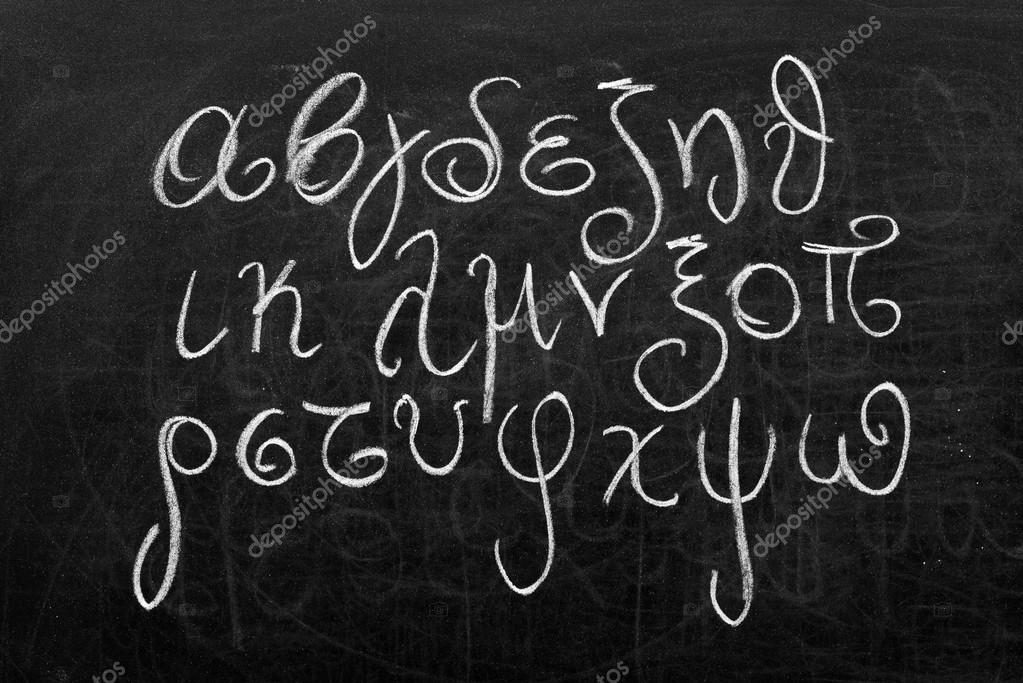 αβγδεζηθ
ικλμνξοπ
ρστυφχψω
depositphotos
depositphotos
depositphotos
depositphotos
depositphotos
depositphotos
depositphotos